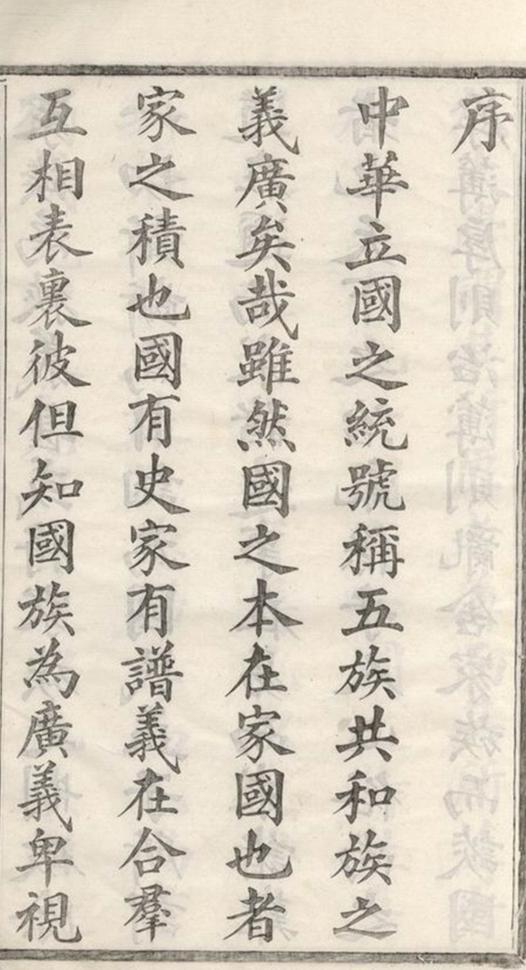 序
中華立國之統號稱五族共和族之
義廣矣哉雖然國之本在家國也者
家之積也國有史家有譜義在合羣
互相表裏彼但知國族為廣義卑視